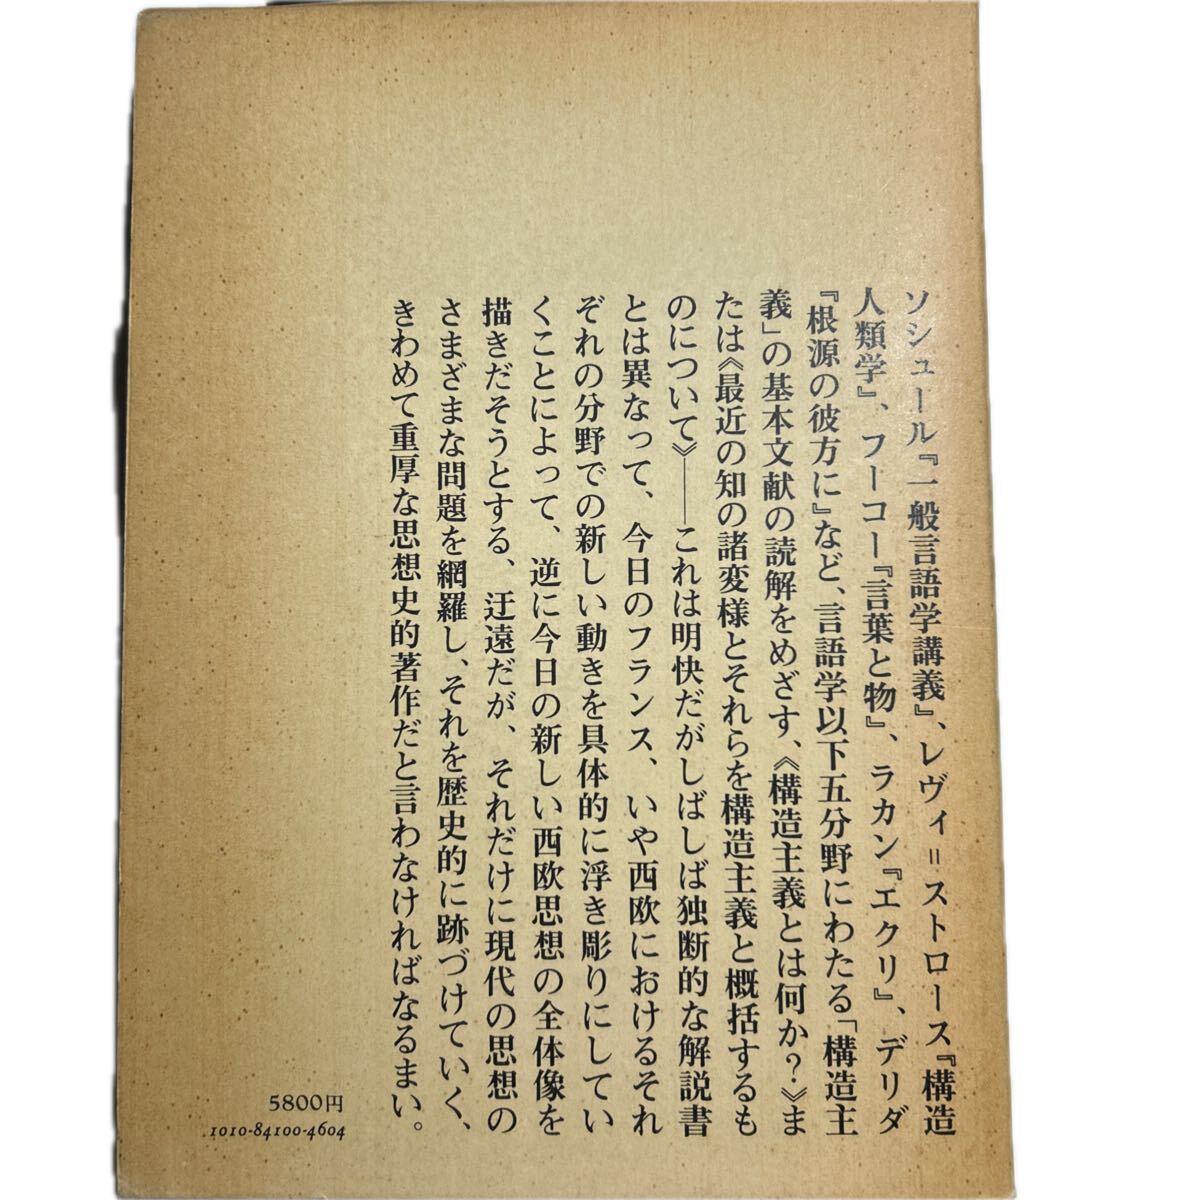 ソシュール『一般言語学講義』、レヴィ＝ストロース『構造
人類学』、フーコー『言葉と物』、ラカン『エクリ』、デリダ
『根源の彼方に』など、言語学以下五分野にわたる「構造主
義」の基本文献の読解をめざす、《構造主義とは何か？》ま
たは《最近の知の諸変様とそれらを構造主義と概括するも
のについて》――これは明快だがしばしば独断的な解説書
とは異なって、今日のフランス、いや西欧におけるそれ
ぞれの分野での新しい動きを具体的に浮き彫りにしてい
くことによって、逆に今日の新しい西欧思想の全体像を
描きだそうとする、迂遠だが、それだけに現代の思想の
さまざまな問題を網羅し、それを歴史的に跡づけていく、
きわめて重厚な思想史的著作だと言わなければなるまい。
5800円
1010-84100-4604